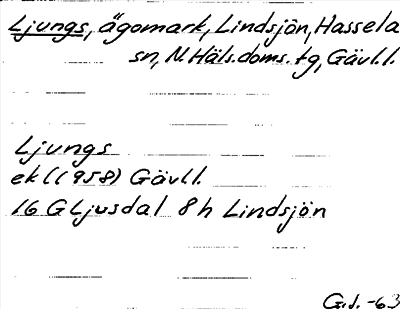 Ljungs, ägomark, Lindsjön, Hassela
sn, N. Häls. doms. tg, Gävl.l.
Ljungs
ek l (1958) Gävl l.
16 G Ljusdal 8 h Lindsjön
G.J. -63